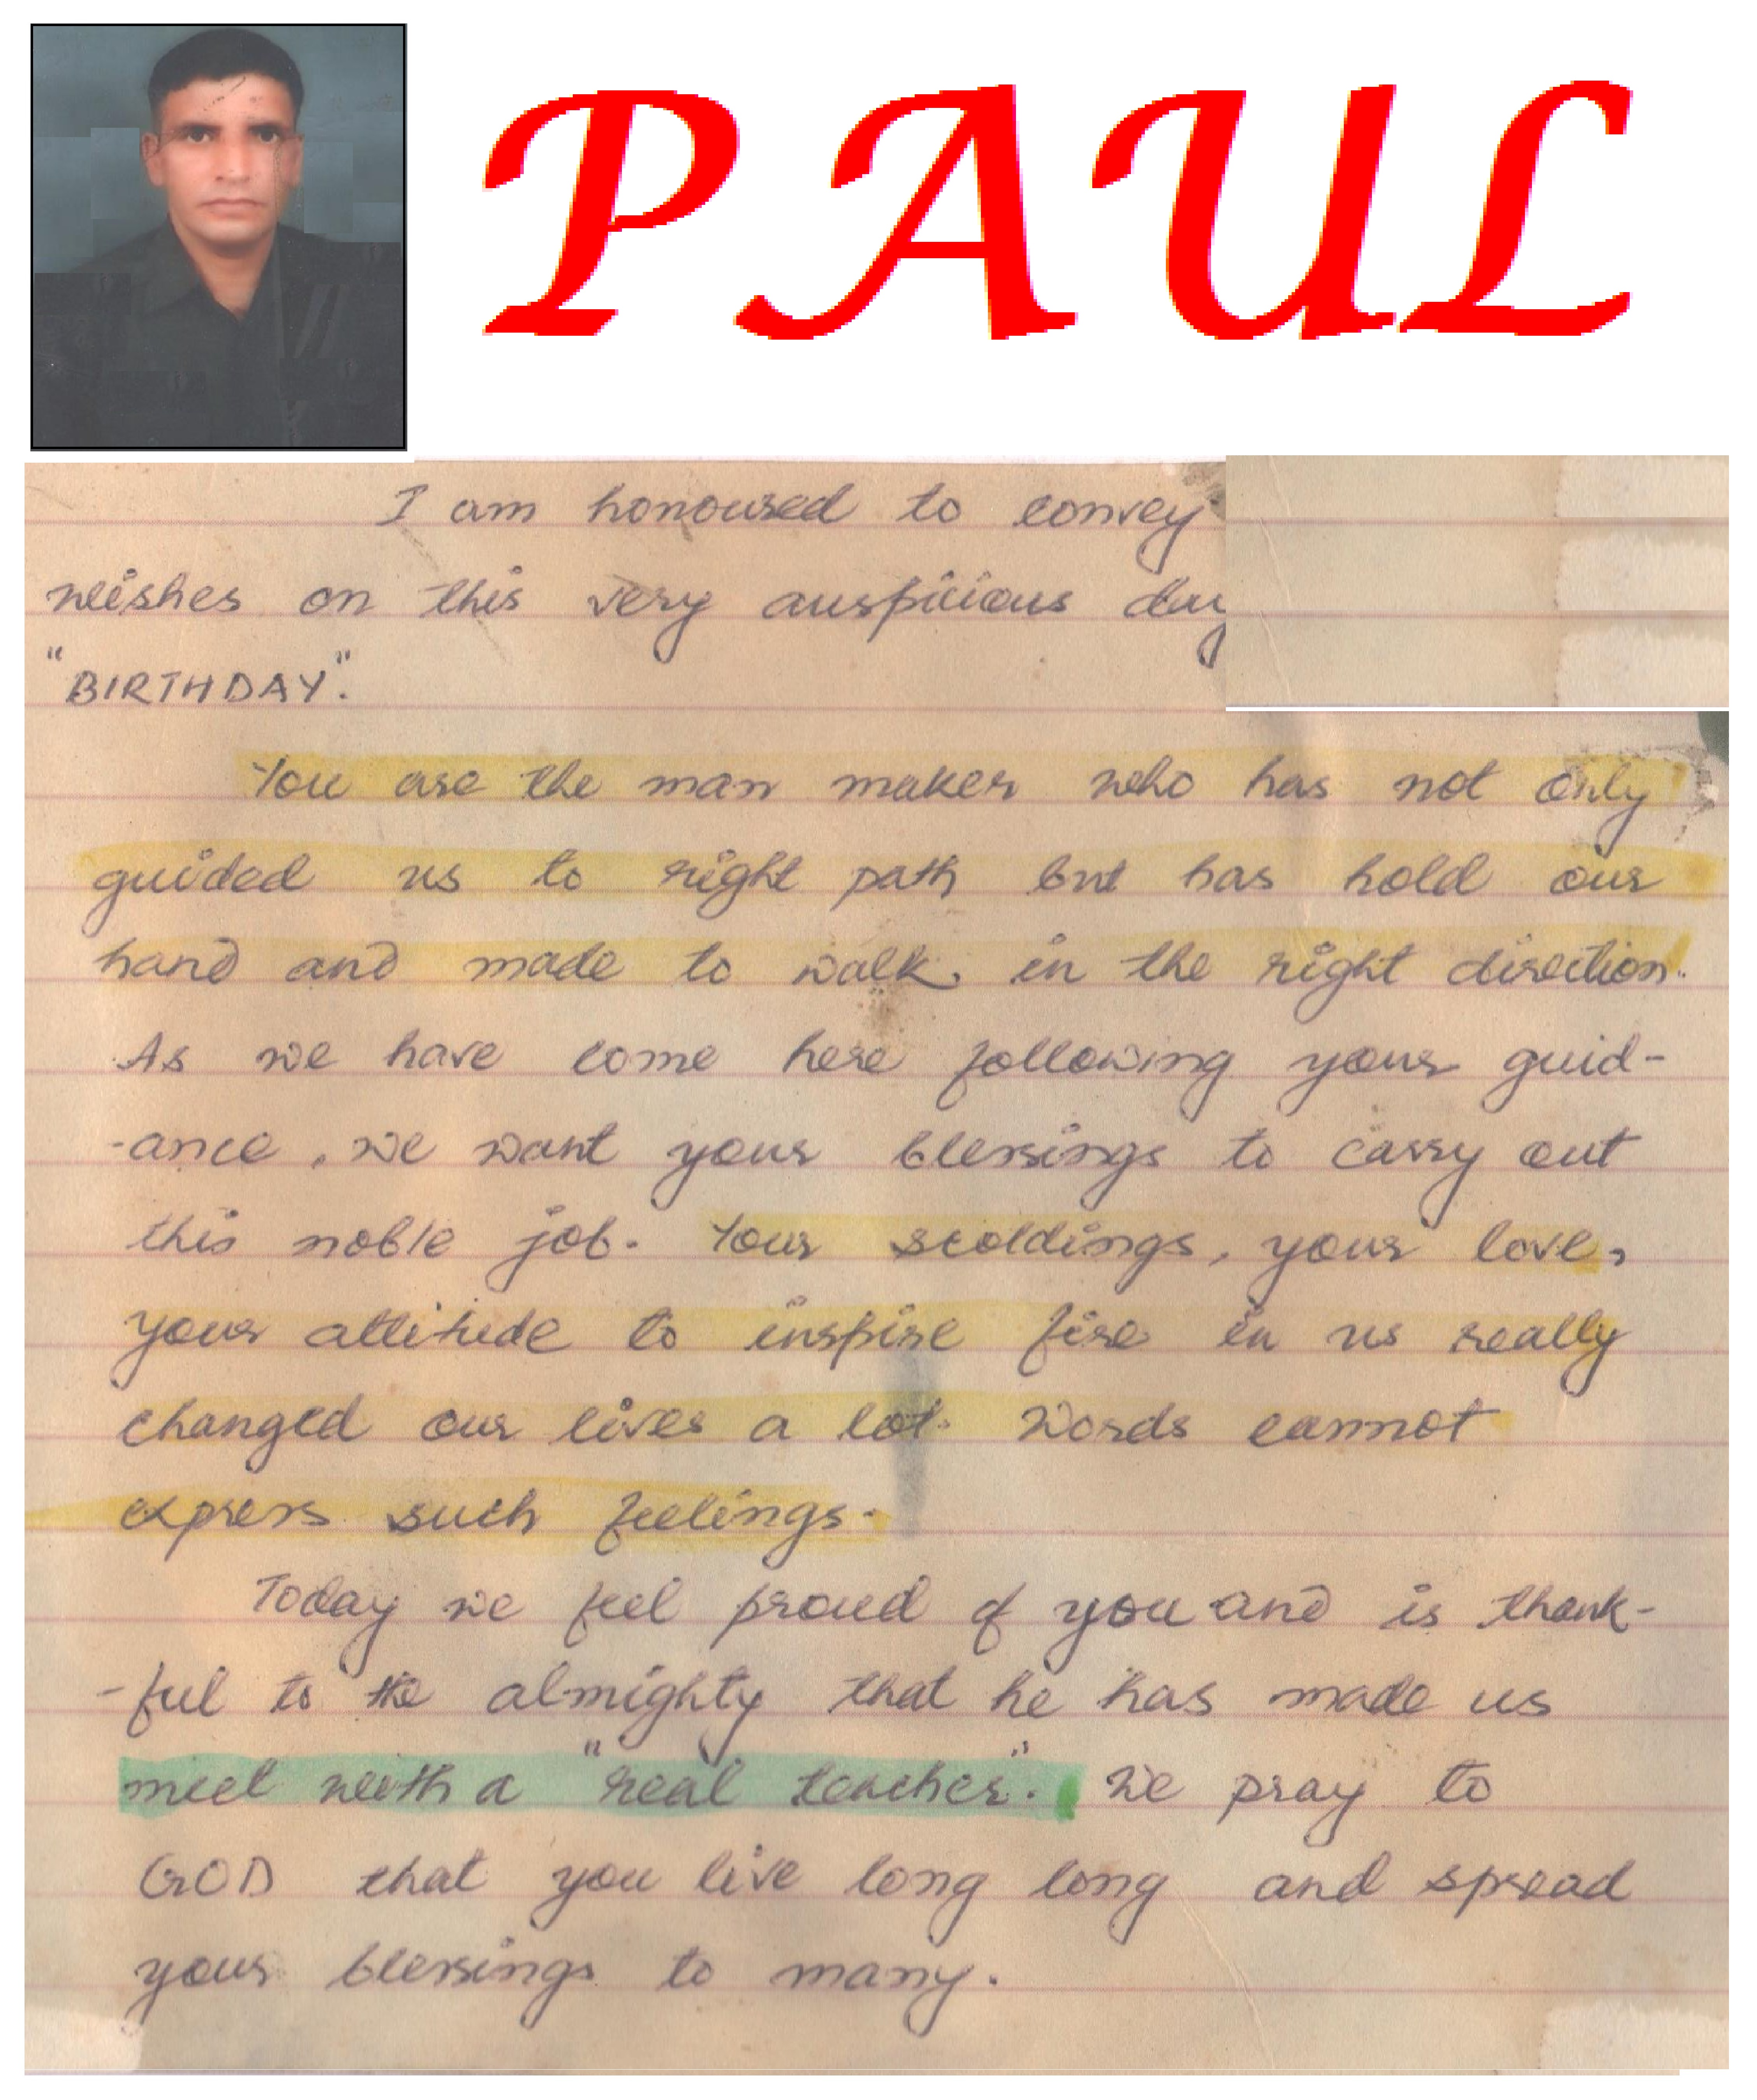 PAUL
I am honoured to convey
wishes on this very auspicious day
"BIRTHDAY".
You are the man maker who has not only
guided us to right path but has hold our
hand and made to walk in the right direction.
As we have come here following your guid-
-ance, we want your blessings to carry out
this noble job. Your scoldings, your love,
your attitude to inspire fire in us really
changed our lives a lot. Words cannot
express such feelings.
Today we feel proud of you and is thank-
-ful to the almighty that he has made us
meet with a "real teacher". We pray to
GOD that you live long long and spread
your blessings to many.